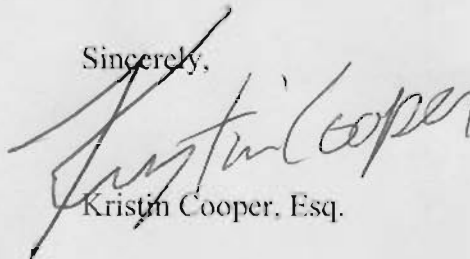 Sincerely,
Kristin Cooper
Kristin Cooper, Esq.